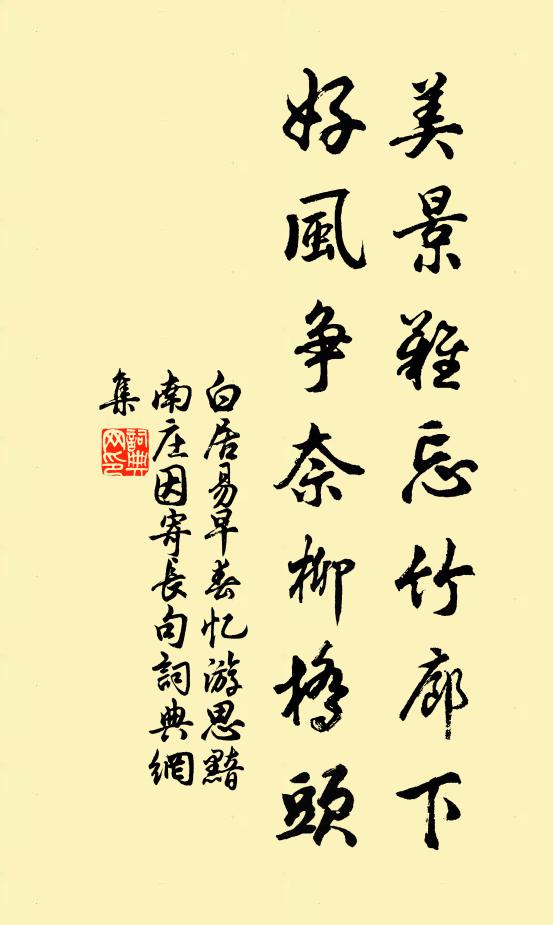 美景難忘竹廊下
好風争奈柳橋頭
白居易早春忆游思黯
南庄因寄長句詞典網
集
詞典網印